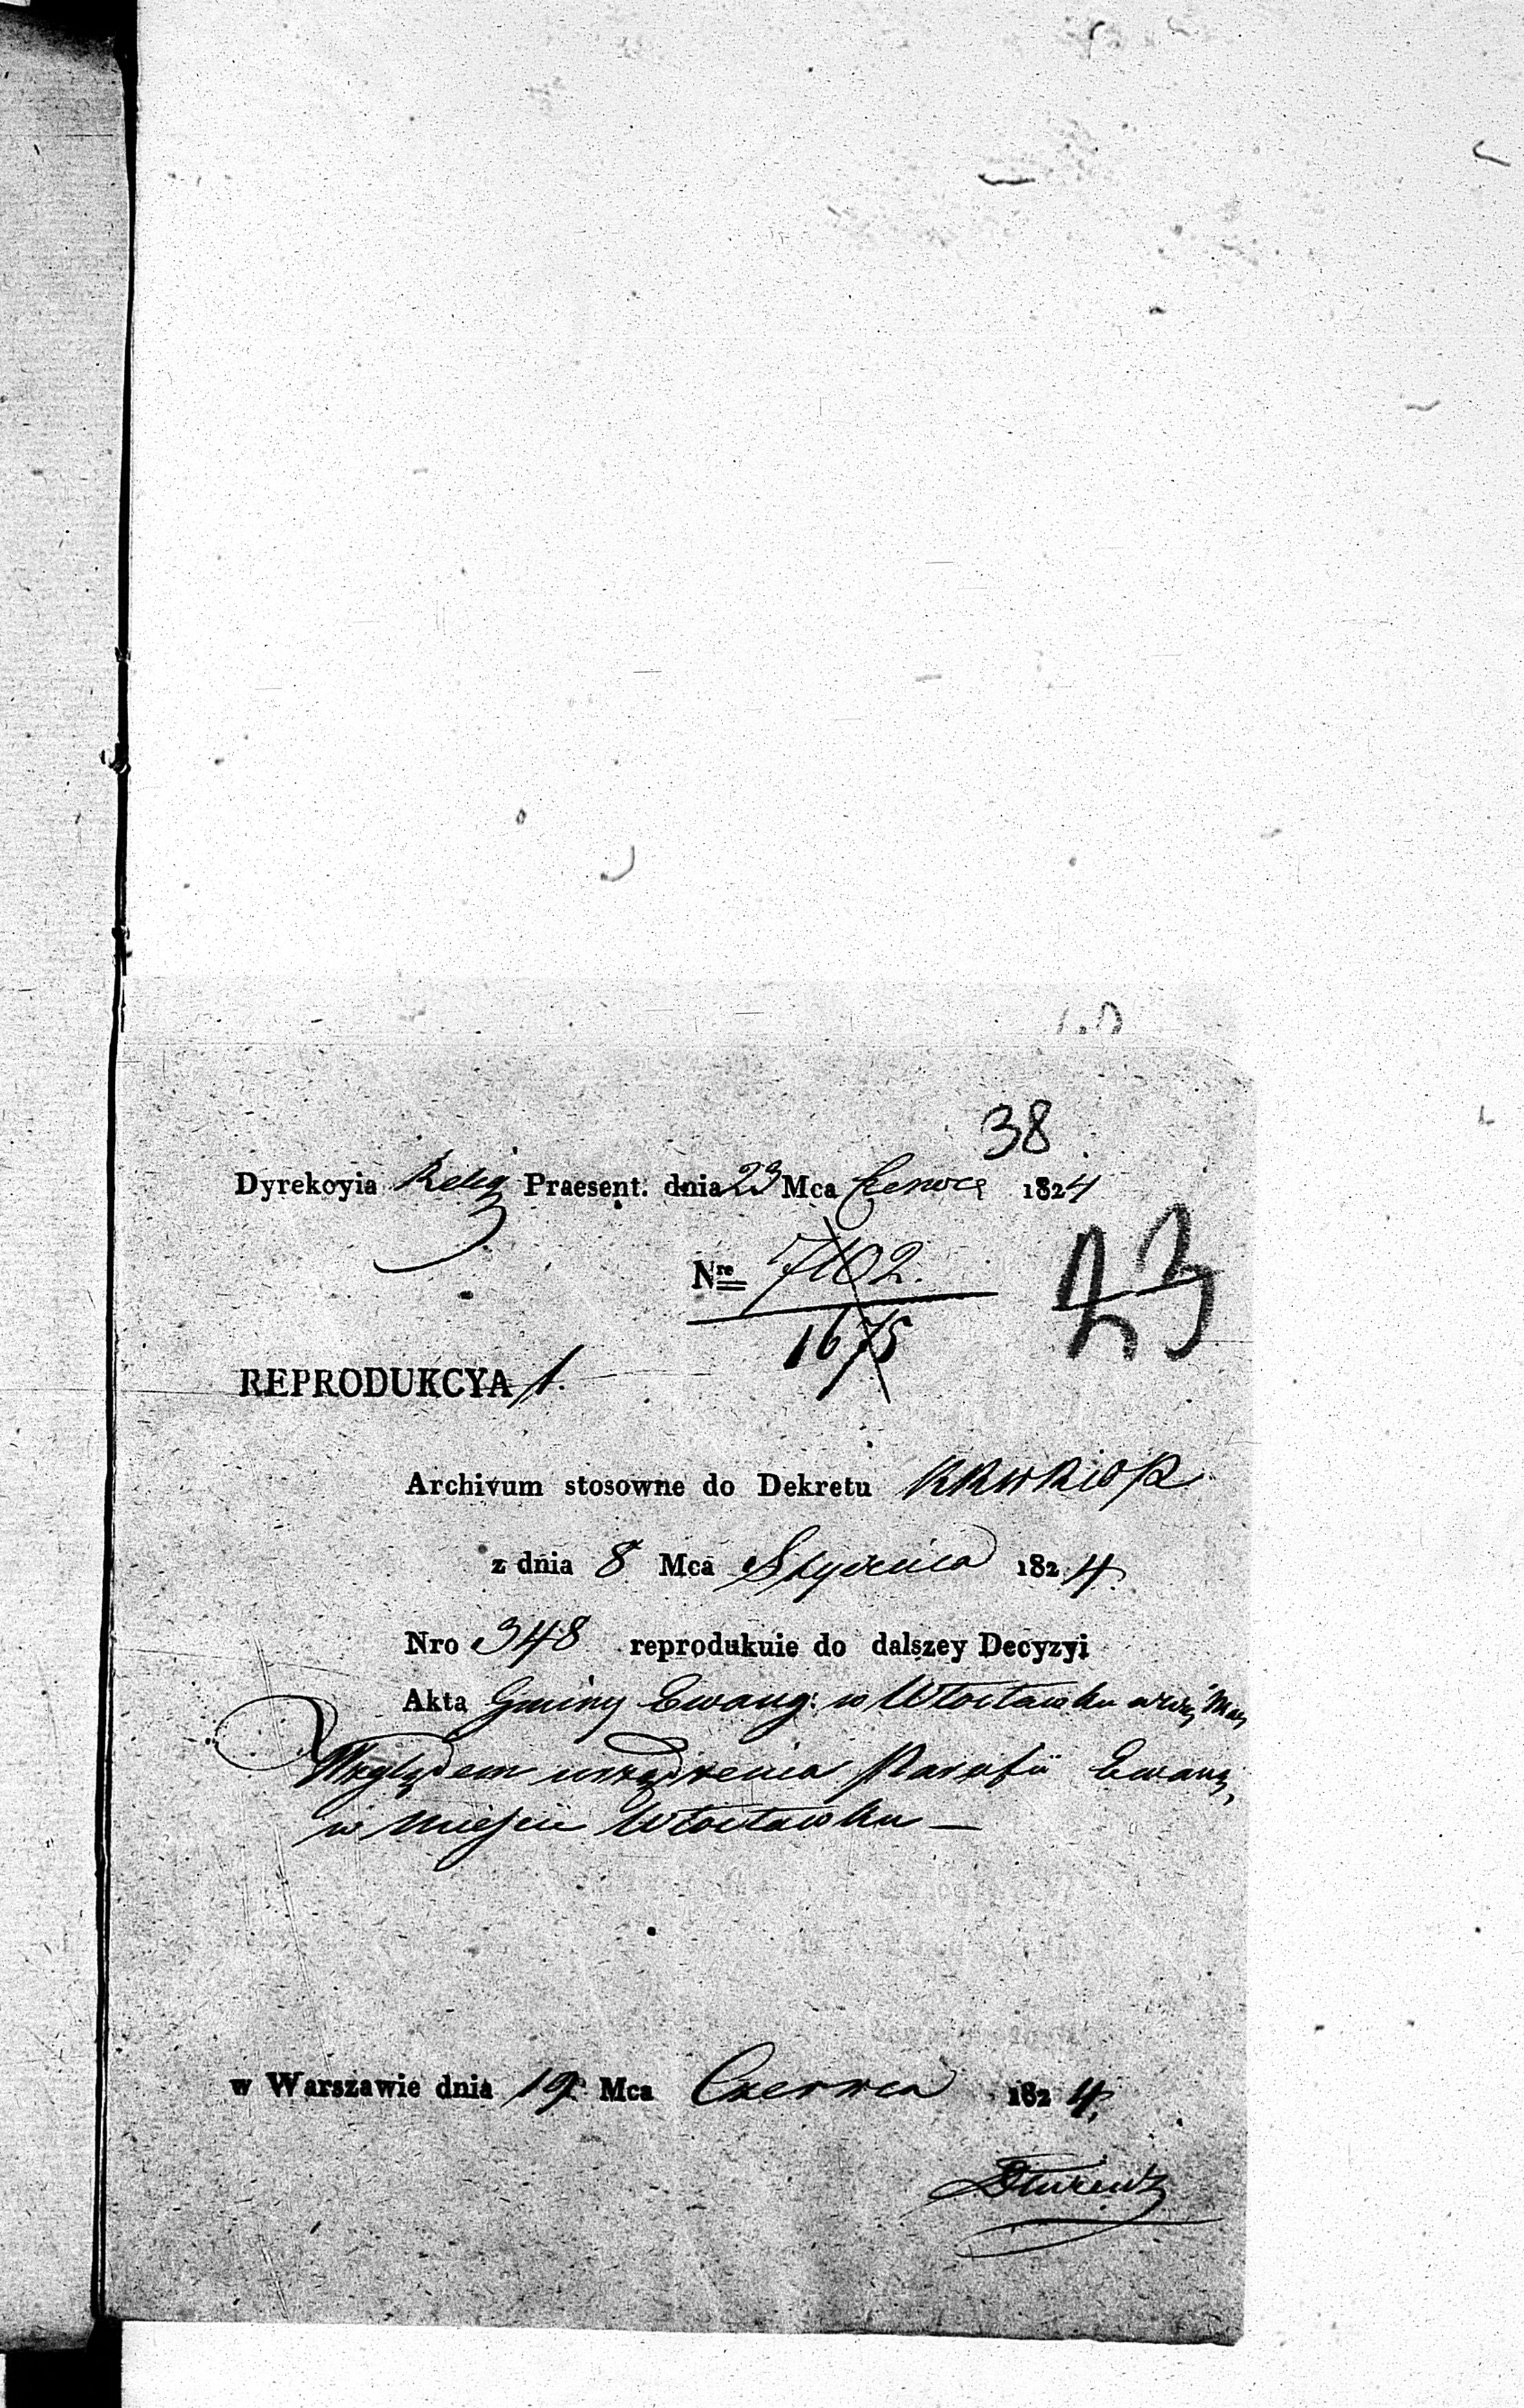 38
Dyrekcyia Relig Praesent. dnia 23 Mca Czerwca 1824
Nro 7102.
23
1675
REPRODUKCYA 1.
Archivum stosowne do Dekretu
z dnia 8 Mca Stycznia 1824.
Nro 348 reprodukuie do dalszey Decyzyi
Akta Gminy Ewang: w Włocławku
Względem urządzenia Parafii Ewang,
w Mieście Włocławku —
w Warszawie dnia 19 Mca Czerwca 1824.